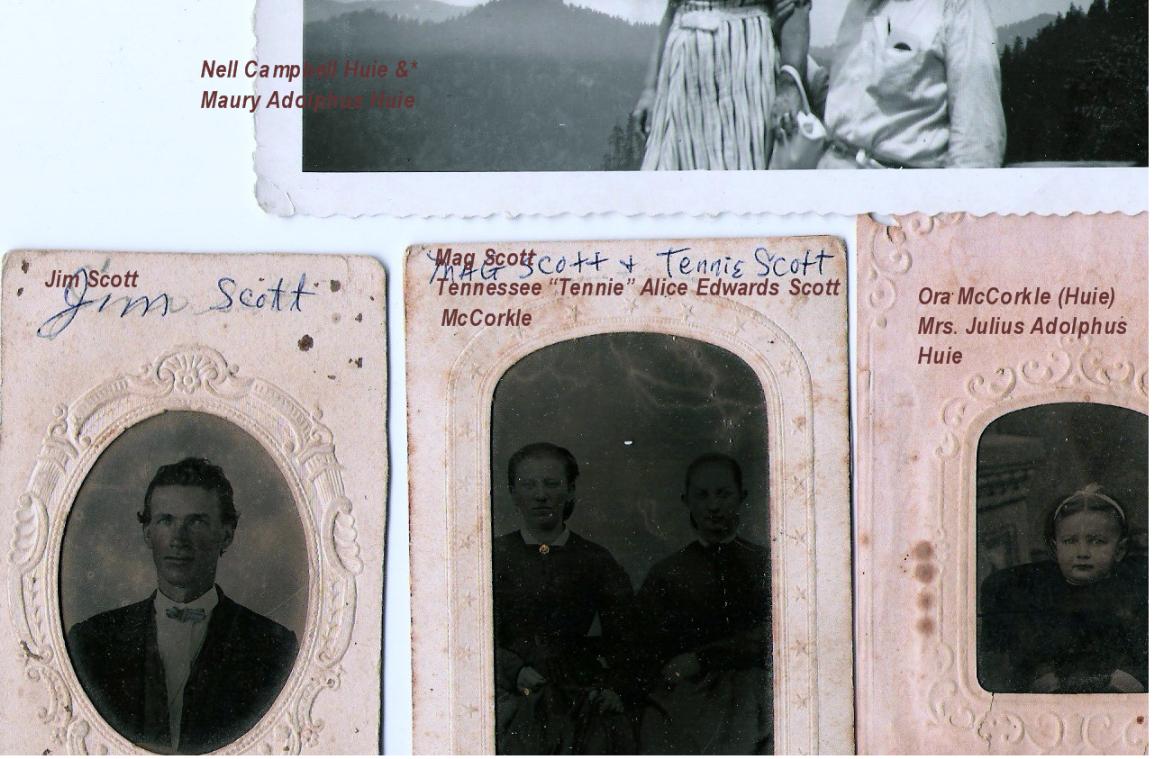 Nell Campbell Huie &*
Maury Adolphus Huie
Jim Scott
Jim Scott
Mag Scott
MAG Scott + Tennie Scott
Tennessee “Tennie” Alice Edwards Scott
McCorkle
Ora McCorkle (Huie)
Mrs. Julius Adolphus
Huie